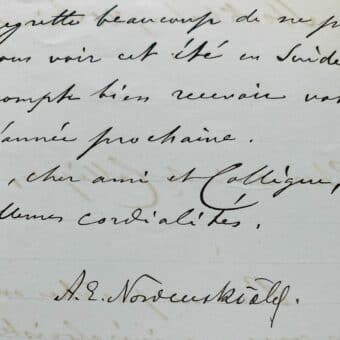 egrette beaucoup de ne p
ous voir cet été en Suède
compte bien recevoir vo
'année prochaine.
, cher ami et Collègue,
llemes cordialités.
A. E. Nordenskiöld.